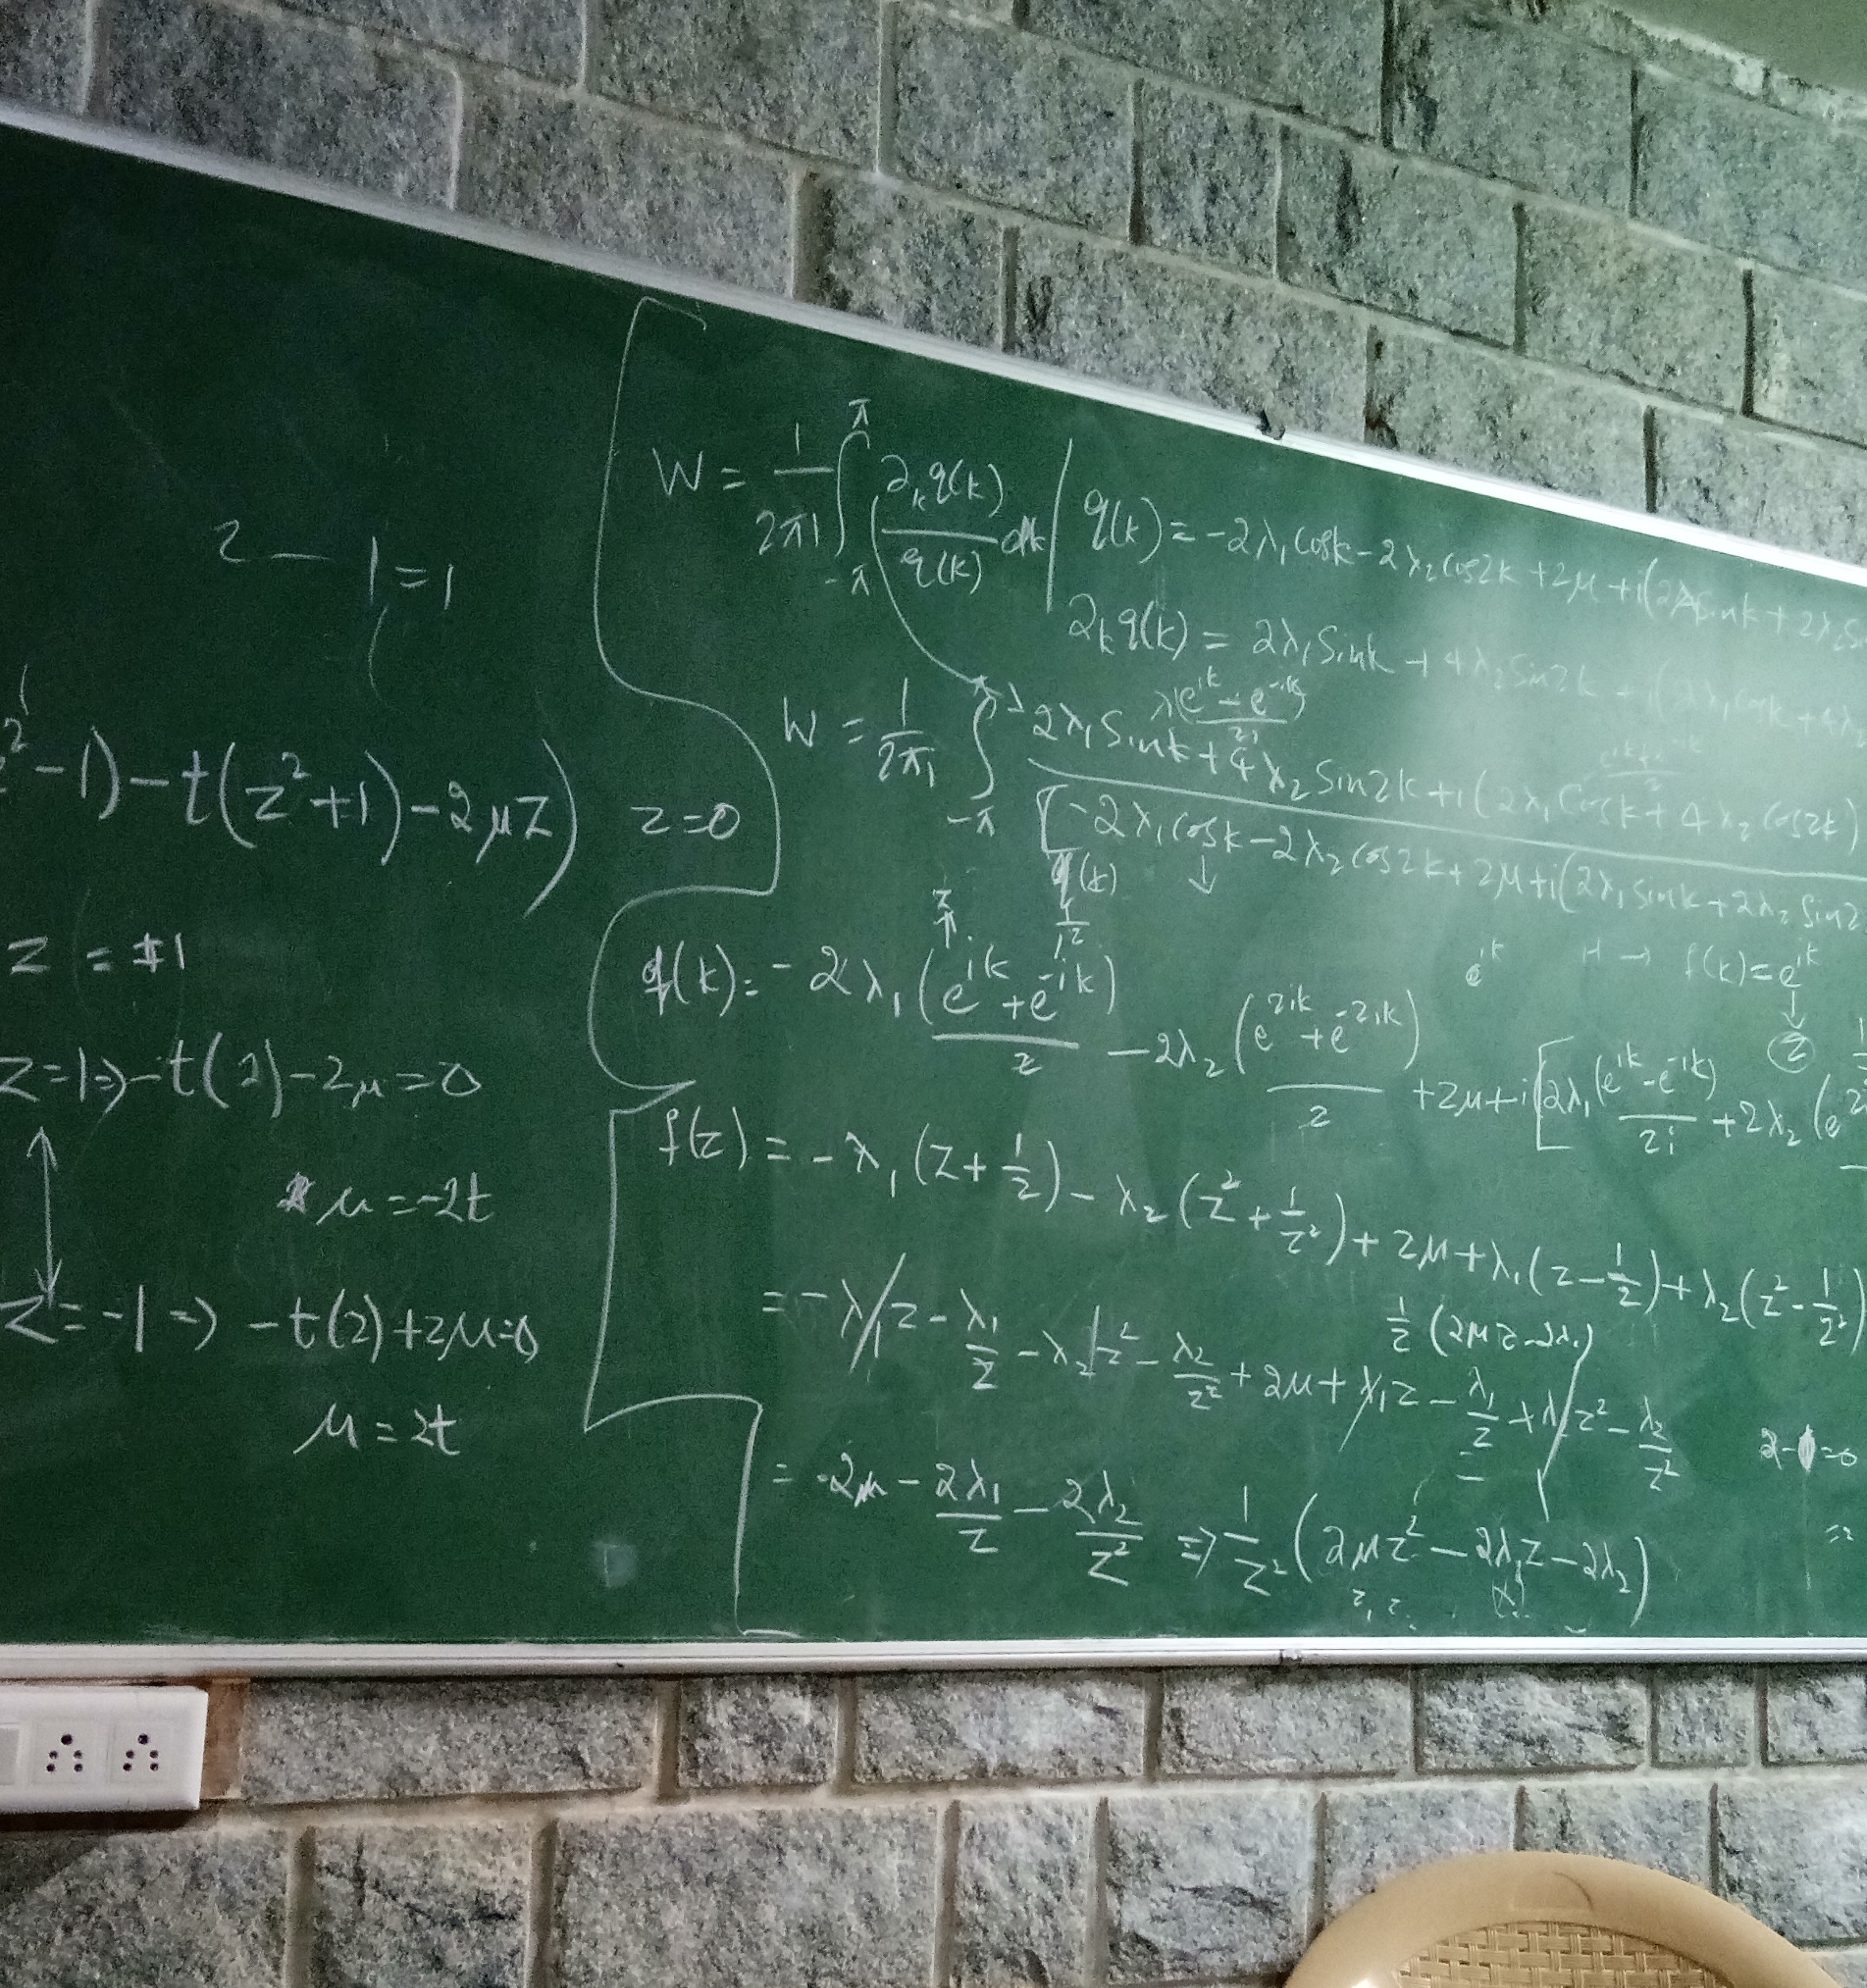 2 - 1 = 1
² - 1) - t(z² + 1) - 2μz) z = 0
z = ±1
z = 1 ⇒ -t(2) - 2μ = 0
μ = -2t
z = -1 ⇒ -t(2) + 2μ = 0
μ = 2t
W = 1/2πi ∫_{-π}^{π} ∂ₖq(k)/q(k) dk | q(k) = -2λ₁ cosk - 2λ₂ cos2k + 2μ + i(2λ₁ sink + 2λ₂ S
∂ₖq(k) = 2λ₁ Sink + 4λ₂ Sin2k + i(2λ₁ cosk + 4λ₂
W = 1/2πi ∫_{-π}^{π} 2λ₁ Sink + 4λ₂ Sin2k + i(2λ₁ Cosk + 4λ₂ cos2k)
[-2λ₁ cosk - 2λ₂ cos2k + 2μ + i(2λ₁ sink + 2λ₂ sin2
q(k) ↓
e^{ik} H → f(k) = e^{ik}
↓
z
q(k) = -2λ₁ (e^{ik} + e^{-ik})/2 - 2λ₂ (e^{2ik} + e^{-2ik})/2 + 2μ + i[2λ₁ (e^{ik} - e^{-ik})/2i + 2λ₂ (e²
f(z) = -λ₁(z + 1/z) - λ₂(z² + 1/z²) + 2μ + λ₁(z - 1/z) + λ₂(z² - 1/z²)
1/z (2μz - 2λ₁)
= -λ₁z - λ₁/z - λ₂z² - λ₂/z² + 2μ + λ₁z - λ₁/z + λ₂z² - λ₂/z²
= 2μ - 2λ₁/z - 2λ₂/z² ⇒ 1/z² (2μz² - 2λ₁z - 2λ₂)